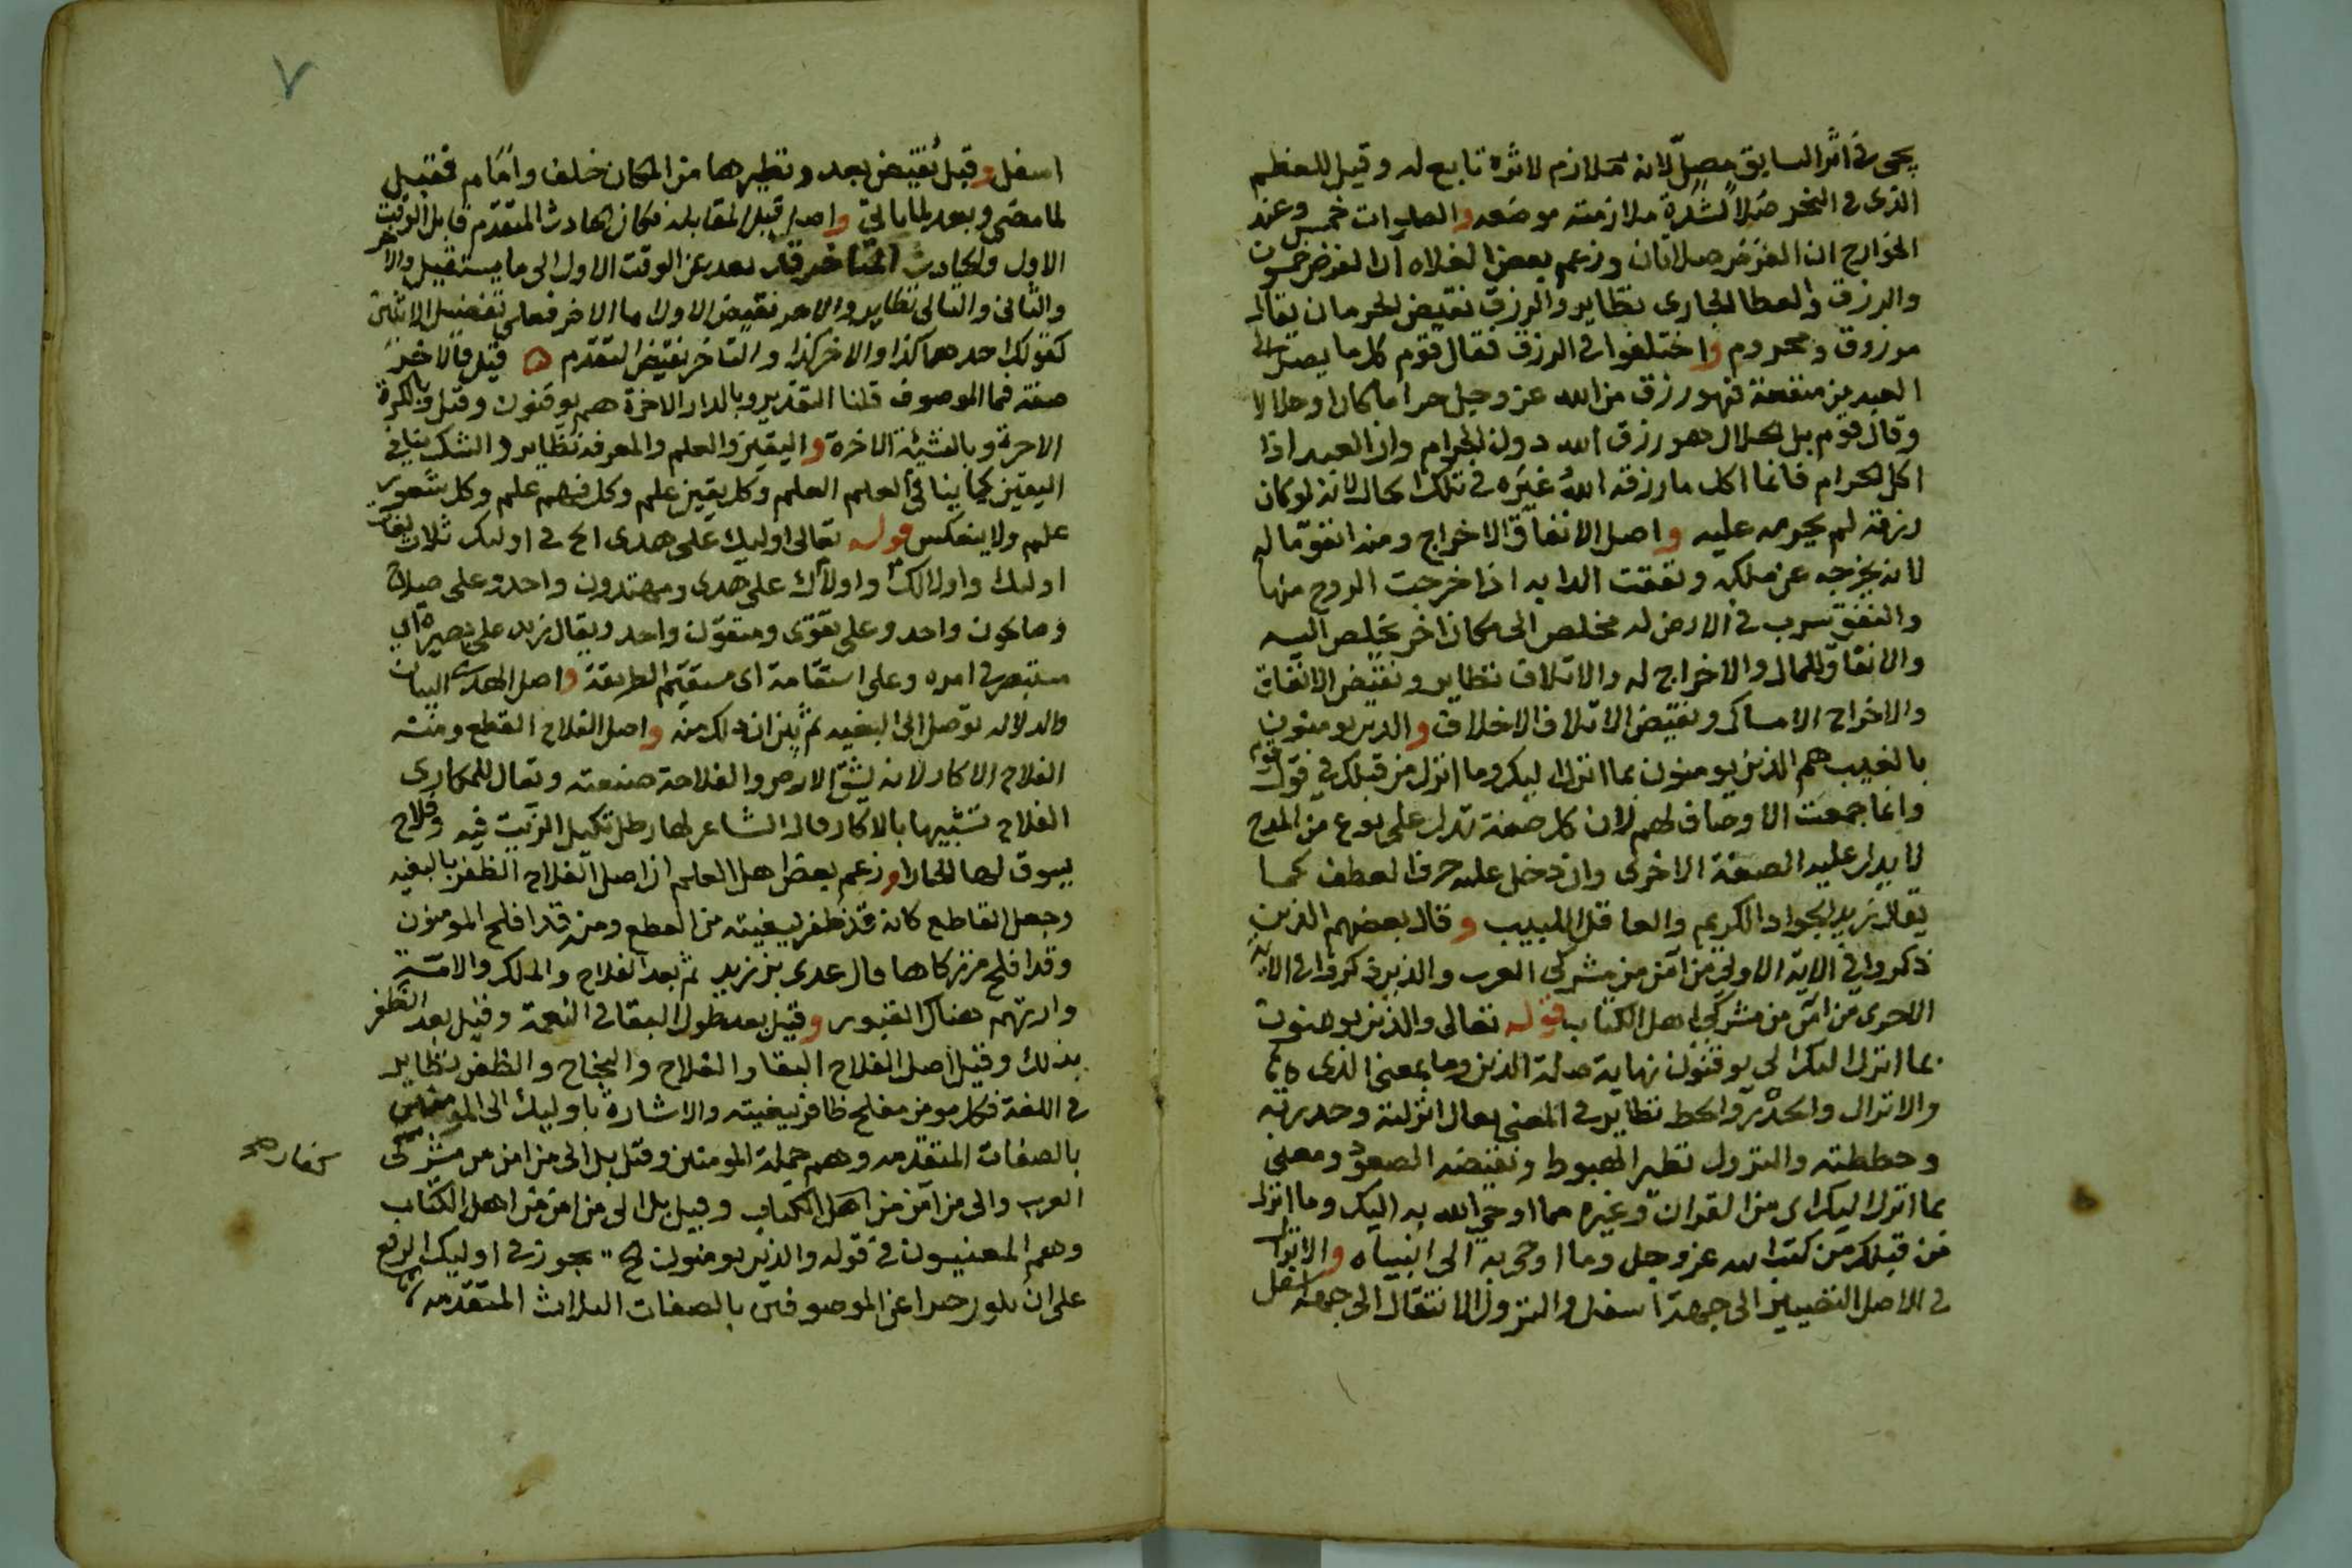 يجى فى اثر السابق مصلّ لانه ملازم لاثره تابع له وقيل للعظم
الذى فى العجز صَلاً لشدة ملازمته موضعه والصلوات خمس وعند
الخوارج ان الفرض صلاتان وزعم بعض الغلاه ان الفرض خمسون
والرزق والعطا الجارى نظاير والرزق نقيض الحرمان يقال
مرزوق ومحروم واختلفوا فى الرزق فقال قوم كل ما يصل الى
العبد من منفعة فهو رزق من الله عز وجل حراما كان او حلالا
وقال قوم بل الحلال هو رزق الله دون الحرام وان العبد اذا
اكل الحرام فانما اكل ما رزقه الله غيره فى تلك الحال لانه لو كان
رزقه لم يحرمه عليه واصل الانفاق الاخراج ومنه انفق ماله
لانه يخرجه عن ملكه ونفقت الدابه اذا خرجت الروح منها
والنفق سرب فى الارض له مخلص الى مكان اخر يخلص اليه
والانفاق للمال والاخراج له والاتلاف نظاير ونقيض الانفاق
والاخراج الامساك ونقيض الاتلاف الاخلاف والذين يومنون
بالغيب هم الذين يومنون بما انزل اليك وما انزل من قبلك فى قول قوم
وانما جمعت الاوصاف لهم لان كل صفة تدل على نوع من المدح
لا يدل عليه الصفة الاخرى وان دخل عليه حرف العطف كما
يقال زيد الجواد الكريم والعاقل اللبيب وقال بعضهم الذين
ذكروا فى الاية الاولى من آمن من مشركى العرب والذين ذكروا فى الاية
الاخرى من آمن من مشركى اهل الكتاب قوله تعالى والذين يومنون
بما انزل اليك الى يوقنون نهاية صلة الذين وما بمعنى الذى
والانزال والحدر والحط نظاير فى المعنى يقال انزلته وحدرته
وحططته والنزول نظير الهبوط ونقيضه الصعود ومعنى
بما انزل اليك اى من القرآن وغيره مما اوحى الله به اليك وما انزل
من قبلك من كتب الله عز وجل وما اوحى به الى انبياه والانزال
فى الاصل التصيير الى جهة اسفل والنزول الانتقال الى جهة اسفل
٧
اسفل وقبل نقيض بعد ونظيرهما من المكان خلف وامام فقبل
لما مضى وبعد لما ياتى واصل قبل المقابله فكان الحادث المتقدم قابل الوقت
الاول والحادث المتاخر قد بعد عن الوقت الاول الى ما يستقبل والاخر
والثانى والتالى نظاير والاخر نقيض الاول اما الاخر فعلى تفضيل الاثنين
كقولك احدهما كذا والاخر كذا والتاخر نقيض التقدم قيل فالاخرة
صفة فما الموصوف قلنا التقدير وبالدار الاخرة هم يوقنون وقيل بالكرة
الاخرة وبالنشئة الاخرة واليقين والعلم والمعرفة نظاير والشك ينافى
اليقين كما ينافى العلم العلم وكل يقين علم وكل فهم علم وكل شعور
علم ولا ينعكس قوله تعالى اوليك على هدى الخ فى اوليك ثلاث لغات
اوليك واولالك واولاك على هدى ومهتدون واحد وعلى صلاح
وصالحون واحد وعلى تقوى ومتقون واحد ويقال زيد على بصيرة اى
مستبصر فى امره وعلى استقامة اى مستقيم الطريقة واصل الهدى البيان
والدلاله توصل الى البغيه ثم بين ان ذلك منه واصل الفلاح القطع ومنه
الفلاح الاكار لانه يشق الارض والفلاحة صنعته ويقال للمكارى
الفلاح تشبيها بالاكار قال الشاعر لها رطل تكيل الزيت فيه وفلاح
يسوق لها الحمارا وزعم بعض اهل العلم ان اصل الفلاح الظفر بالبغيه
وجعل القاطع كانه قد ظفر ببغيته من القطع ومنه قد افلح المومنون
وقد افلح من زكاها قال عدى بن زيد ثم بعد الفلاح والملك والامّة
وارتهم هناك القبور وقيل بعد طول البقا فى النعمة وقيل بعد الظفر
بذلك وقيل اصل الفلاح البقا والفلاح والنجاح والظفر نظاير
فى اللغة فكل مومن مفلح ظافر ببغيته والاشارة باوليك الى المومنين
بالصفات المتقدمه وهم جملة المومنين وقيل بل الى من امن من مشركى
العرب والى من آمن من اهل الكتاب وقيل بل الى من امن من اهل الكتاب
وهم المعنيون فى قوله والذين يومنون الخ يجوز فى اوليك الرفع
على ان يكون خبرا عن الموصوفين بالصفات الثلاث المتقدمه
كفار صح